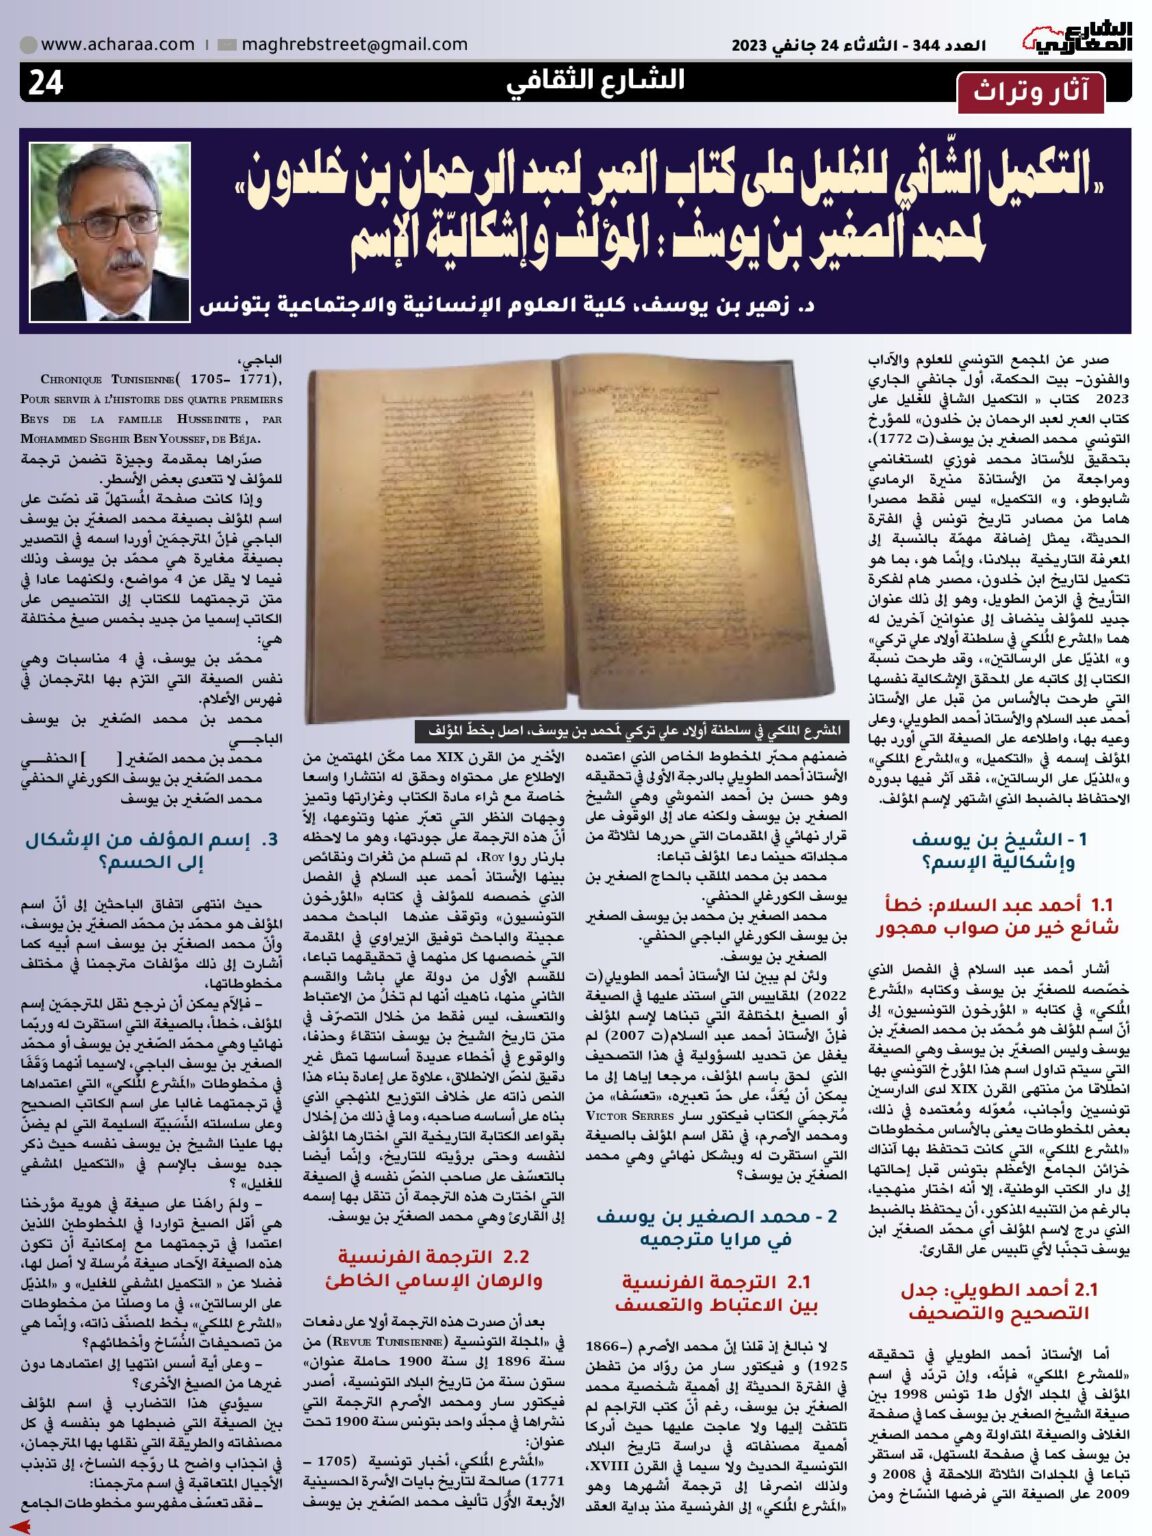 الشارع المغاربي
العدد 344 - الثلاثاء 24 جانفي 2023
maghrebstreet@gmail.com | www.acharaa.com
آثار وتراث
الشارع الثقافي
24
«التكميل الشّافي للغليل على كتاب العبر لعبد الرحمان بن خلدون»
لمحمد الصغير بن يوسف : المؤلف وإشكاليّة الإسم
د. زهير بن يوسف، كلية العلوم الإنسانية والاجتماعية بتونس
صدر عن المجمع التونسي للعلوم والآداب
والفنون- بيت الحكمة، أول جانفي الجاري
2023 كتاب « التكميل الشافي للغليل على
كتاب العبر لعبد الرحمان بن خلدون» للمؤرخ
التونسي محمد الصغير بن يوسف(ت 1772)،
بتحقيق للأستاذ محمد فوزي المستغانمي
ومراجعة من الأستاذة منيرة الرمادي
شابوطو، و« التكميل» ليس فقط مصدرا
هاما من مصادر تاريخ تونس في الفترة
الحديثة، يمثل إضافة مهمّة بالنسبة إلى
المعرفة التاريخية ببلادنا، وإنّما هو، بما هو
تكميل لتاريخ ابن خلدون، مصدر هام لفكرة
التأريخ في الزمن الطويل، وهو إلى ذلك عنوان
جديد للمؤلف ينضاف إلى عنوانين آخرين له
هما «المشرع المُلكي في سلطنة أولاد علي تركي»
و« المذيّل على الرسالتين»، وقد طرحت نسبة
الكتاب إلى كاتبه على المحقق الإشكالية نفسها
التي طرحت بالأساس من قبل على الأستاذ
أحمد عبد السلام والأستاذ أحمد الطويلي، وعلى
وعيه بها، واطلاعه على الصيغة التي أورد بها
المؤلف إسمه في «التكميل» و«المشرع الملكي»
و«المذيّل على الرسالتين»، فقد آثر فيها بدوره
الاحتفاظ بالضبط الذي اشتهر لإسم المؤلف.
1 - الشيخ بن يوسف
وإشكالية الإسم؟
1.1 أحمد عبد السلام: خطأ
شائع خير من صواب مهجور
أشار أحمد عبد السلام في الفصل الذي
خصّصه للصغيّر بن يوسف وكتابه «المَشرع
المُلكي» في كتابه « المؤرخون التونسيون» إلى
أنّ اسم المؤلف هو مُحمّد بن محمد الصغيّر بن
يوسف وليس الصغيّر بن يوسف وهي الصيغة
التي سيتم تداول اسم هذا المؤرخ التونسي بها
انطلاقا من منتهى القرن XIX لدى الدارسين
تونسيين وأجانب، معُوّله ومُعتمده في ذلك،
بعض المخطوطات يعنى بالأساس مخطوطات
«المشرع الملكي» التي كانت تحتفظ بها آنذاك
خزائن الجامع الأعظم بتونس قبل إحالتها
إلى دار الكتب الوطنية، إلا أنه اختار منهجيا،
بالرغم من التنبيه المذكور، أن يحتفظ بالضبط
الذي درج لاسم المؤلف أي محمّد الصغيّر ابن
يوسف تجنّبا لأي تلبيس على القارئ.
2.1 أحمد الطويلي: جدل
التصحيح والتصحيف
أما الأستاذ أحمد الطويلي في تحقيقه
«للمشرع الملكي» فإنّه، وإن تردّد في اسم
المؤلف في المجلد الأول ط1 تونس 1998 بين
صيغة الشيخ الصغير بن يوسف كما في صفحة
الغلاف والصيغة المتداولة وهي محمد الصغير
بن يوسف كما في صفحة المستهل، قد استقر
تباعا في المجلدات الثلاثة اللاحقة في 2008 و
2009 على الصيغة التي فرضها النسّاخ ومن
المشرع الملكي في سلطنة أولاد علي تركي لمَحمد بن يوسف، اصل بخطّ المؤلف
ضمنهم محبّر المخطوط الخاص الذي اعتمده
الأستاذ أحمد الطويلي بالدرجة الأولى في تحقيقه
وهو حسن بن أحمد النموشي وهي الشيخ
الصغير بن يوسف ولكنه عاد إلى الوقوف على
قرار نهائي في المقدمات التي حررها لثلاثة من
مجلداته حينما دعا المؤلف تباعا:
محمد بن محمد الملقب بالحاج الصغير بن
يوسف الكورغلي الحنفي.
محمد الصغير بن محمد بن يوسف الصغير
بن يوسف الكورغلي الباجي الحنفي.
الصغير بن يوسف.
ولئن لم يبين لنا الأستاذ أحمد الطويلي(ت
2022) المقاييس التي استند عليها في الصيغة
أو الصيغ المختلفة التي تبناها لإسم المؤلف
فإنّ الأستاذ أحمد عبد السلام(ت 2007) لم
يغفل عن تحديد المسؤولية في هذا التصحيف
الذي لحق باسم المؤلف، مرجعا إياها إلى ما
يمكن أن يُعَدّ، على حدّ تعبيره، «تعسّفا» من
مُترجمَي الكتاب فيكتور سار Victor Serres
ومحمد الأصرم، في نقل اسم المؤلف بالصيغة
التي استقرت له وبشكل نهائي وهي محمد
الصغيّر بن يوسف؟
2 - محمد الصغير بن يوسف
في مرايا مترجميه
2.1 الترجمة الفرنسية
بين الاعتباط والتعسف
لا نبالغ إذ قلنا إنّ محمد الأصرم (-1866
1925) و فيكتور سار من روّاد من تفطن
في الفترة الحديثة إلى أهمية شخصية محمد
الصغيّر بن يوسف، رغم أنّ كتب التراجم لم
تلتفت إليها ولا عاجت عليها حيث أدركا
أهمية مصنفاته في دراسة تاريخ البلاد
التونسية الحديث ولا سيما في القرن XVIII،
ولذلك انصرفا إلى ترجمة أشهرها وهو
«المَشرع المُلكي» إلى الفرنسية منذ بداية العقد
الأخير من القرن XIX مما مكّن المهتمين من
الاطلاع على محتواه وحقق له انتشارا واسعا
خاصة مع ثراء مادة الكتاب وغزارتها وتميز
وجهات النظر التي تعبّر عنها وتنوعها، إلاّ
أنّ هذه الترجمة على جودتها، وهو ما لاحظه
بارنار روا Roy، لم تسلم من ثغرات ونقائص
بينها الأستاذ أحمد عبد السلام في الفصل
الذي خصصه للمؤلف في كتابه «المؤرخون
التونسيون» وتوقف عندها الباحث محمد
عجينة والباحث توفيق الزيراوي في المقدمة
التي خصصها كل منهما في تحقيقهما تباعا،
للقسم الأول من دولة علي باشا والقسم
الثاني منها، ناهيك أنها لم تخلُ من الاعتباط
والتعسف، ليس فقط من خلال التصرّف في
متن تاريخ الشيخ بن يوسف انتقاءً وحذفا،
والوقوع في أخطاء عديدة أساسها تمثل غير
دقيق لنصّ الانطلاق، علاوة على إعادة بناء هذا
النص ذاته على خلاف التوزيع المنهجي الذي
بناه على أساسه صاحبه، وما في ذلك من إخلال
بقواعد الكتابة التاريخية التي اختارها المؤلف
لنفسه وحتى برؤيته للتاريخ، وإنّما أيضا
بالتعسّف على صاحب النصّ نفسه في الصيغة
التي اختارت هذه الترجمة أن تنقل بها إسمه
إلى القارئ وهي محمد الصغيّر بن يوسف.
2.2 الترجمة الفرنسية
والرهان الإسامي الخاطئ
بعد أن صدرت هذه الترجمة أولا على دفعات
في «المجلة التونسية (Revue Tunisienne) من
سنة 1896 إلى سنة 1900 حاملة عنوان»
ستون سنة من تاريخ البلاد التونسية، أصدر
فيكتور سار ومحمد الأصرم الترجمة التي
نشراها في مجلّد واحد بتونس سنة 1900 تحت
عنوان:
«المَشرع المُلكي، أخبار تونسية (1705 –
1771) صالحة لتاريخ بايات الأسرة الحسينية
الأربعة الأُوّل تأليف محمد الصغيّر بن يوسف
الباجي،
Chronique Tunisienne( 1705– 1771),
Pour servir à l'histoire des quatre premiers
Beys de la famille Husseinite , par
Mohammed Seghir Ben Youssef, de Béja.
صدّراها بمقدمة وجيزة تضمن ترجمة
للمؤلف لا تتعدى بعض الأسطر.
وإذا كانت صفحة المُستهلّ قد نصّت على
اسم المؤلف بصيغة محمد الصغيّر بن يوسف
الباجي فإنّ المترجمَين أوردا اسمه في التصدير
بصيغة مغايرة هي محمّد بن يوسف وذلك
فيما لا يقل عن 4 مواضع، ولكنهما عادا في
متن ترجمتهما للكتاب إلى التنصيص على
الكاتب إسميا من جديد بخمس صيغ مختلفة
هي:
محمّد بن يوسف، في 4 مناسبات وهي
نفس الصيغة التي التزم بها المترجمان في
فهرس الأعلام.
محمد بن محمد الصّغير بن يوسف
الباجـــي
محمد بن محمد الصّغير [ ] الحنفـــي
محمد الصّغير بن يوسف الكورغلي الحنفي
محمد الصّغير بن يوسف
3. إسم المؤلف من الإشكال
إلى الحسم؟
حيث انتهى اتفاق الباحثين إلى أنّ اسم
المؤلف هو محمّد بن محمّد الصغيّر بن يوسف،
وأنّ محمد الصغيّر بن يوسف اسم أبيه كما
أشارت إلى ذلك مؤلفات مترجمنا في مختلف
مخطوطاتها،
– فإلاَم يمكن أن نرجع نقل المترجمَين إسم
المؤلف، خطأ، بالصيغة التي استقرت له وربّما
نهائيا وهي محمّد الصّغير بن يوسف أو محمّد
الصغير بن يوسف الباجي، لاسيما أنهما وَقَفَا
في مخطوطات «المَشرع المُلكي» التي اعتمداها
في ترجمتهما غالبا على اسم الكاتب الصحيح
وعلى سلسلته النّسَبيّة السليمة التي لم يضنّ
بها علينا الشيخ بن يوسف نفسه حيث ذكر
جده يوسف بالإسم في «التكميل المشفي
للغليل» ؟
– ولمَ راهَنا على صيغة في هوية مؤرخنا
هي أقل الصيغ تواردا في المخطوطين اللذين
اعتمدا في ترجمتهما مع إمكانية أن تكون
هذه الصيغة الآحاد صيغة مُرسلة لا أصل لها،
فضلا عن « التكميل المشفي للغليل» و «المذيّل
على الرسالتين»، في ما وصلنا من مخطوطات
«المشرع الملكي» بخط المصنّف ذاته، وإنّما هي
من تصحيفات النُسّاخ وأخطائهم؟
– وعلى أية أسس انتهيا إلى اعتمادها دون
غيرها من الصيغ الأخرى؟
سيؤدي هذا التضارب في اسم المؤلف
بين الصيغة التي ضبطها هو بنفسه في كل
مصنفاته والطريقة التي نقلها بها المترجمان،
في انجذاب واضح لما روّجه النساخ، إلى تذبذب
الأجيال المتعاقبة في اسم مترجمنا:
– فقد تعسّف مفهرسو مخطوطات الجامع